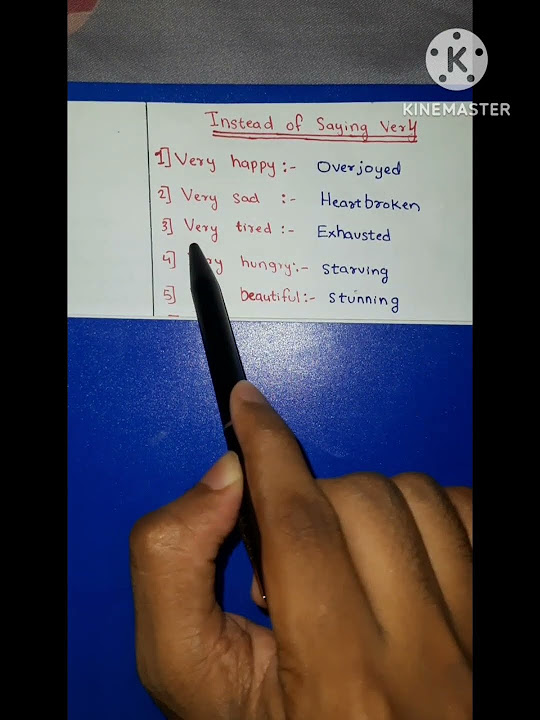 K
KINEMASTER
Instead of Saying Very
1] Very happy :- Overjoyed
2] Very sad :- Heartbroken
3] Very tired :- Exhausted
4] hungry :- starving
5] beautiful :- stunning